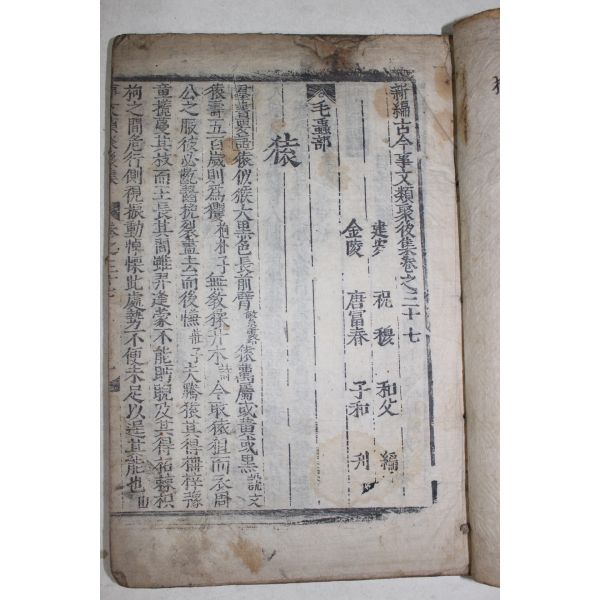 新編古今事文類聚後集卷之三十七
建安 祝穆 和父 編
金陵 唐富春 子和 刋
毛蟲部
猿
羣書要語猿似猴大黑色長前臂繁露猿寓屬或黃或黑說文
猿壽五百歲則為玃抱朴子無教猱升木詩今取猿狙而衣周
公之服彼必齕齧挽裂盡去而後慊莊子夫騰猿其得枏梓豫
章攬蔓其枝而王長其間雖羿逢蒙不能眄睨及其得柘棘枳
枸之間危行側視振動悼慄此處勢不便未足以逞其能也山